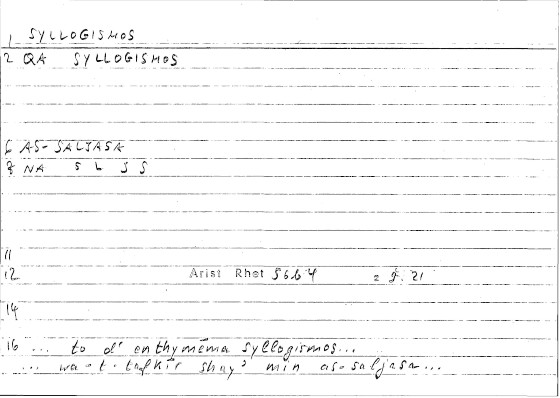 1 SYLLOGISMOS
2 QA SYLLOGISMOS
6 AS-SALJASA
8 NA S L J S
11
12 Arist Rhet 56b4 = 9.21
14
16 ... to d' enthymēma syllogismos...
... wa-t-tafkīr shayʾ min as-saljasa...